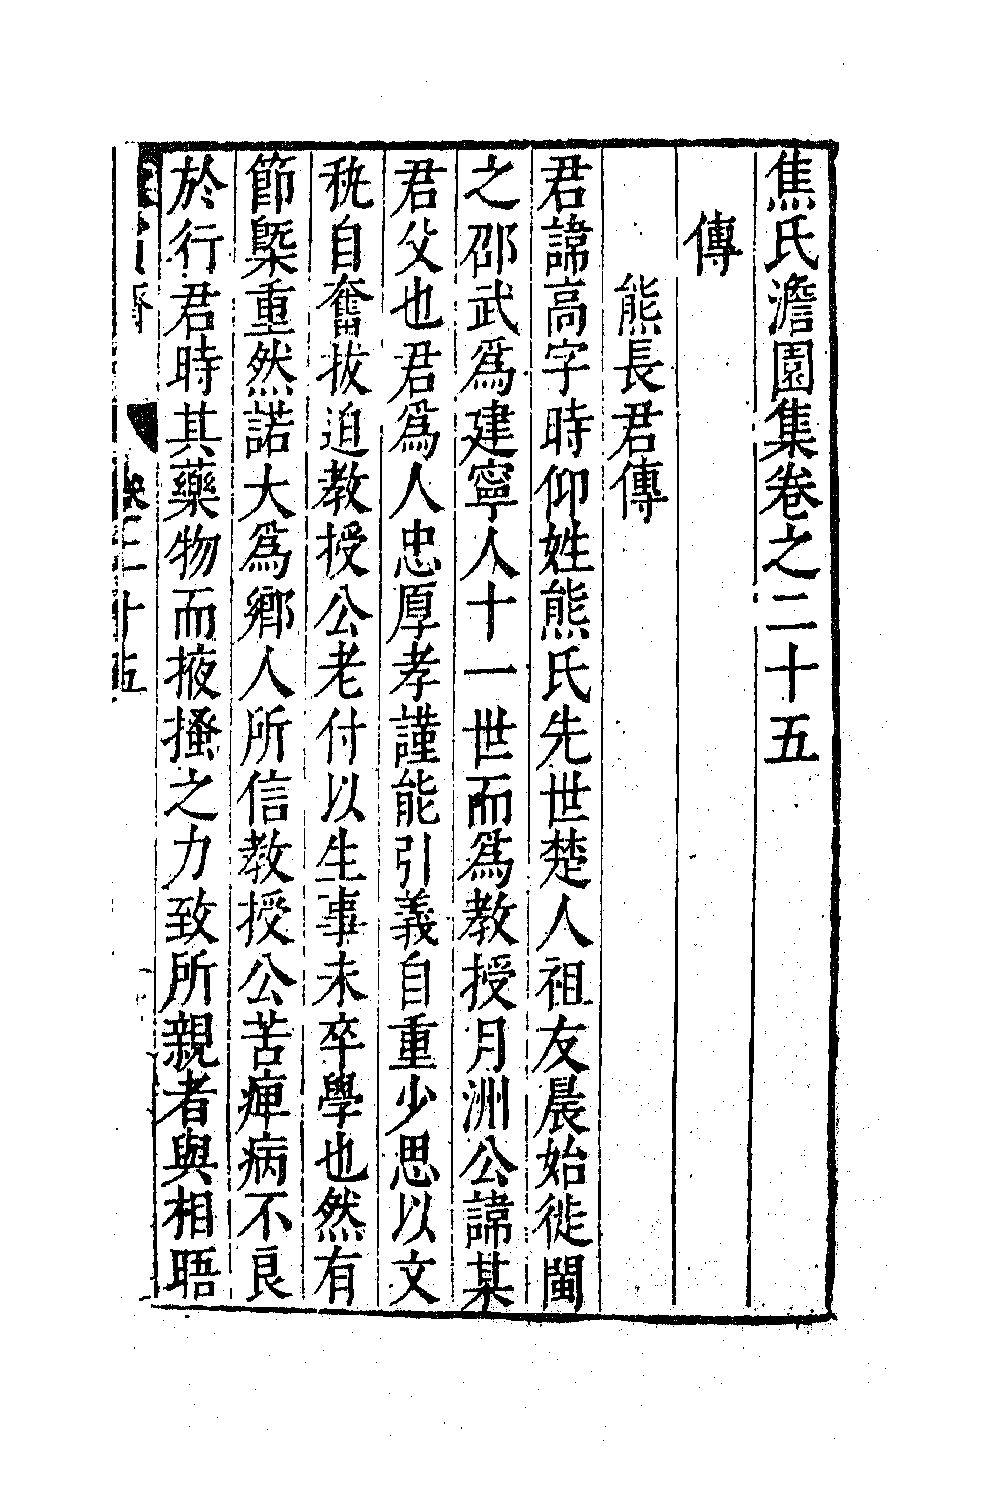 焦氏澹園集卷之二十五
傳
熊長君傳
君諱高字時仰姓熊氏先世楚人祖友晨始徙閩
之邵武爲建寧人十一世而爲教授月洲公諱某
君父也君爲人忠厚孝謹能引義自重少思以文
秇自奮拔迫教授公老付以生事未卒學也然有
節槩重然諾大爲鄉人所信教授公苦痺病不良
於行君時其藥物而掖搔之力致所親者與相晤
卷二十五